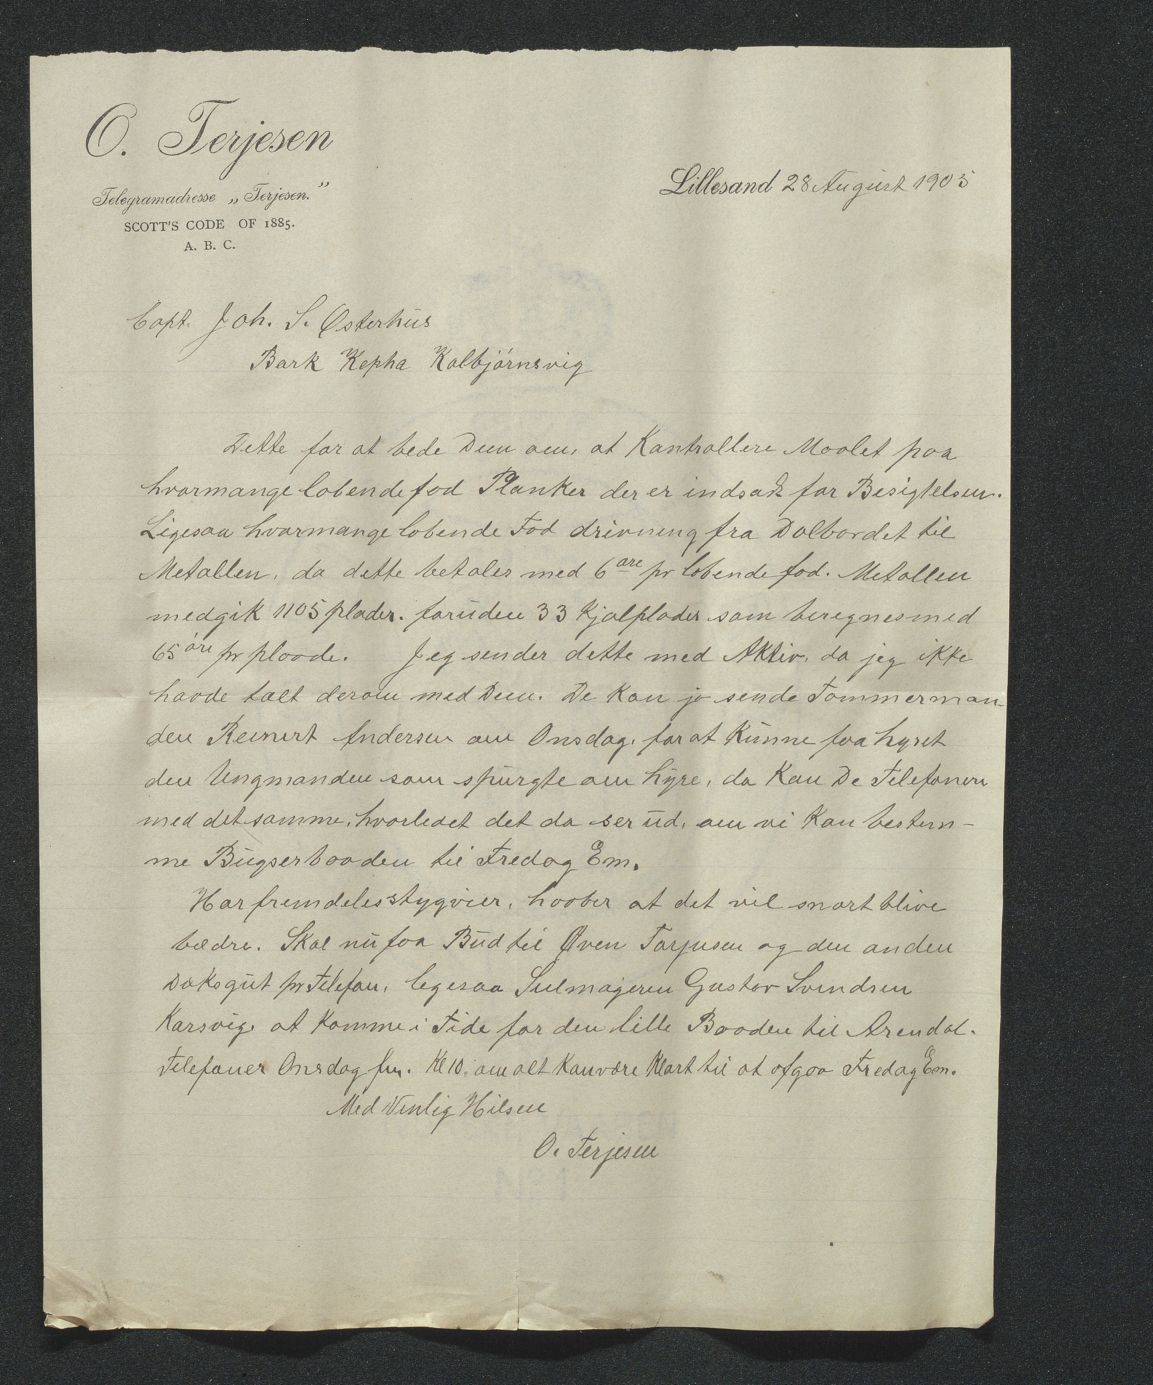 O. Terjesen
Telegramadresse „Terjesen."
SCOTT'S CODE OF 1885.
A. B. C.
Lillesand 28 August 1905
Capt. Joh. S. Østerhus
Bark Kepha Kalbjørnsvig
Dette for at bede Dem om, at Kontrollere Maalet paa
hvormange løbende fod Planker der er indsat for Besigtelsen.
Ligesaa hvormange løbende Fod drivning fra Dolbordet til
Metallen, da dette betales med 6 øre pr løbende fod. Metallen
medgik 1105 plader. foruden 33 Kjølplader som beregnes med
65 øre pr plaade. Jeg sender dette med Aktiv, da jeg ikke
havde talt derom med Dem. De Kan jo sende Tømmerman
den Reinert Andersen om Onsdag, for at Kunne faa hyret
den Ungmanden som spurgte om hyre, da Kan De Telefonere
med det samme, hvorledet det da ser ud, om vi Kan bestem-
me Bugserbaaden til Fredag Em.
Har fremdeles stygveir, haaber at det vil snart blive
bedre. Skal nu faa Bud til Øven Torjusen og den anden
Daksgut pr Telefon, legesaa Seilmageren Gustav Svendsen
Karsvig, at Komme i Tide for den lille Baaden til Arendal.
Telefoner Onsdag fm. Kl 10, om alt Kan være Klart til at afgaa Fredag Em.
Med Venlig Hilsen
O. Terjesen